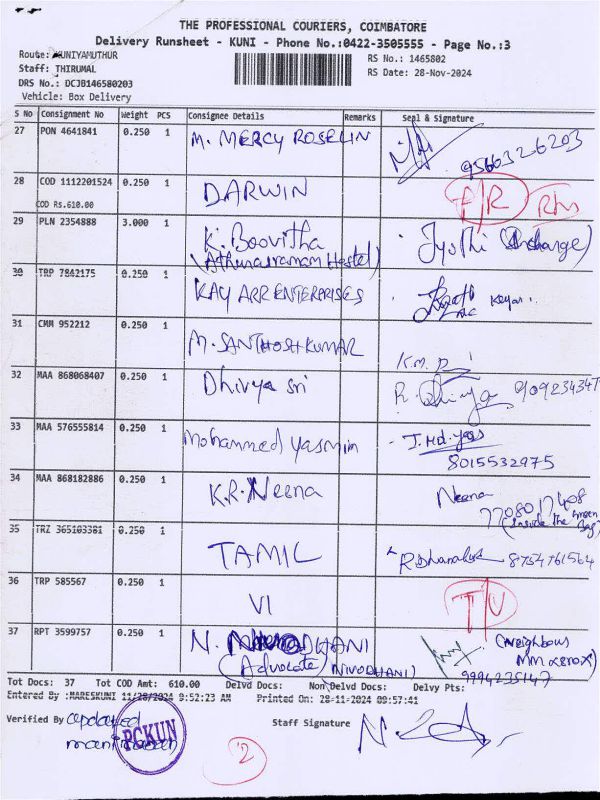 THE PROFESSIONAL COURIERS, COIMBATORE
Delivery Runsheet - KUNI - Phone No.:0422-3505555 - Page No.:3
Route: KUNIYAMUTHUR
RS No.: 1465802
Staff: THIRUMAL
RS Date: 28-Nov-2024
DRS No.: DCJB146580203
Vehicle: Box Delivery
S No Consignment No Weight PCS Consignee Details Remarks Seal & Signature
27 PON 4641841 0.250 1 M. MERCY ROSELIN
28 COD 1112201524 0.250 1 DARWIN
COD RS.610.00
29 PLN 2354888 3.000 1 K. Boovitha Jyothi
30 TRP 7842175 0.250 1 KAY ARR ENTERPRISES
31 CMM 952212 0.250 1 M. SANTHOSH KUMAR
32 MAA 868068407 0.250 1 Dhivya sri R.
33 MAA 576555814 0.250 1 Mohammed yasmin
8015532975
34 MAA 868182886 0.250 1 K.R. Neena Neena
35 TRZ 365103381 0.250 1 TAMIL 8754761564
36 TRP 585567 0.250 1 VI
37 RPT 3599757 0.250 1 N.
(Advocate
9994235147
Tot Docs: 37 Tot COD Amt: 610.00 Delvd Docs: Non Delvd Docs: Delvy Pts:
Entered By :MARESKUNI 11/28/2024 9:52:23 AM Printed On: 28-11-2024 09:57:41
Verified By
Staff Signature
PCKUN
2